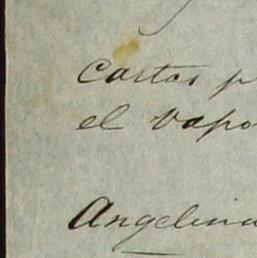 cartas p
el vapo
Angelina